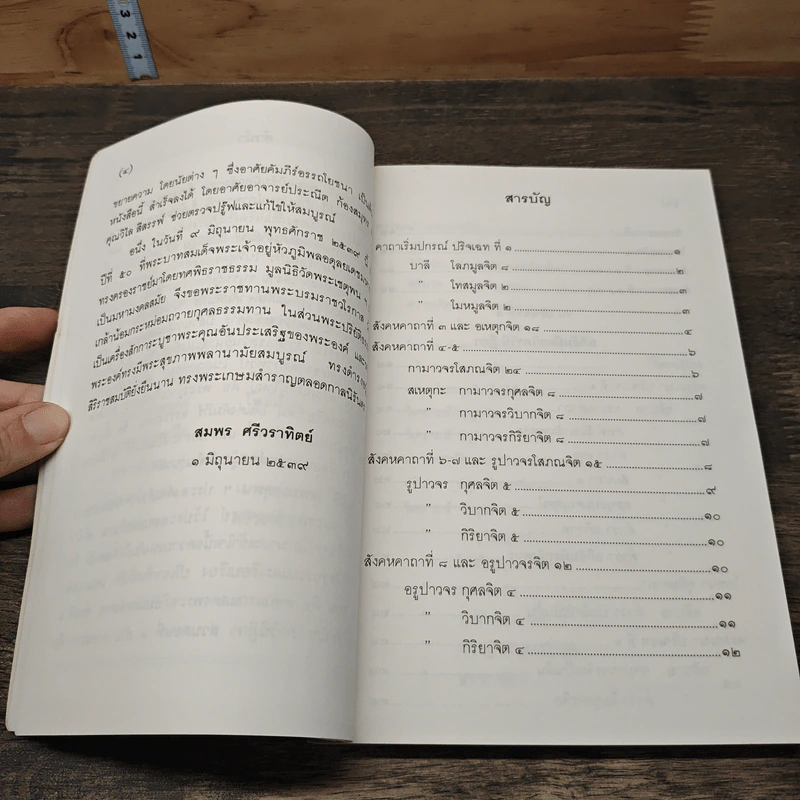 (๔)
ขยายความ โดยนัยต่าง ๆ ซึ่งอาศัยคัมภีร์อรรถโยชนา เป็น
หนังสือนี้ สำเร็จลงได้ โดยอาศัยอาจารย์ประณีต ก้องสมุทร
คุณวิไล สีสรรพ์ ช่วยตรวจปรู๊ฟและแก้ไขให้สมบูรณ์
อนึ่ง ในวันที่ ๙ มิถุนายน พุทธศักราช ๒๕๓๙
ปีที่ ๕๐ ที่พระบาทสมเด็จพระเจ้าอยู่หัวภูมิพลอดุลยเดชมหา
ทรงครองราชย์มาโดยทศพิธราชธรรม มูลนิธิวัดพระเชตุพน ฯ
เป็นมหามงคลสมัย จึงขอพระราชทานพระบรมราชวโรกาส
เกล้าน้อมกระหม่อมถวายกุศลธรรมทาน ในส่วนพระปริยัติ
เป็นเครื่องสักการะบูชาพระคุณอันประเสริฐของพระองค์
พระองค์ทรงมีพระสุขภาพพลานามัยสมบูรณ์ ทรงดำรง
สิริราชสมบัติยั่งยืนนาน ทรงพระเกษมสำราญตลอดกาลนิรันดร์
สมพร ศรีวราทิตย์
๑ มิถุนายน ๒๕๓๙
สารบัญ
คาถาเริ่มปกรณ์ ปริจเฉท ที่ ๑ ๑
บาลี โลภมูลจิต ๘ ๒
" โทสมูลจิต ๒ ๓
" โมหมูลจิต ๒ ๓
สังคหคาถาที่ ๓ และ อเหตุกจิต ๑๘ ๔
สังคหคาถาที่ ๔-๕ ๖
กามาวจรโสภณจิต ๒๔ ๖
สเหตุกะ กามาวจรกุศลจิต ๘ ๗
" กามาวจรวิบากจิต ๘ ๗
" กามาวจรกิริยาจิต ๘ ๗
สังคหคาถาที่ ๖-๗ และ รูปาวจรโสภณจิต ๑๕ ๘
รูปาวจร กุศลจิต ๕ ๙
" วิบากจิต ๕ ๑๐
" กิริยาจิต ๕ ๑๐
สังคหคาถาที่ ๘ และ อรูปาวจรจิต ๑๒ ๑๐
อรูปาวจร กุศลจิต ๔ ๑๑
" วิบากจิต ๔ ๑๑
" กิริยาจิต ๔ ๑๒